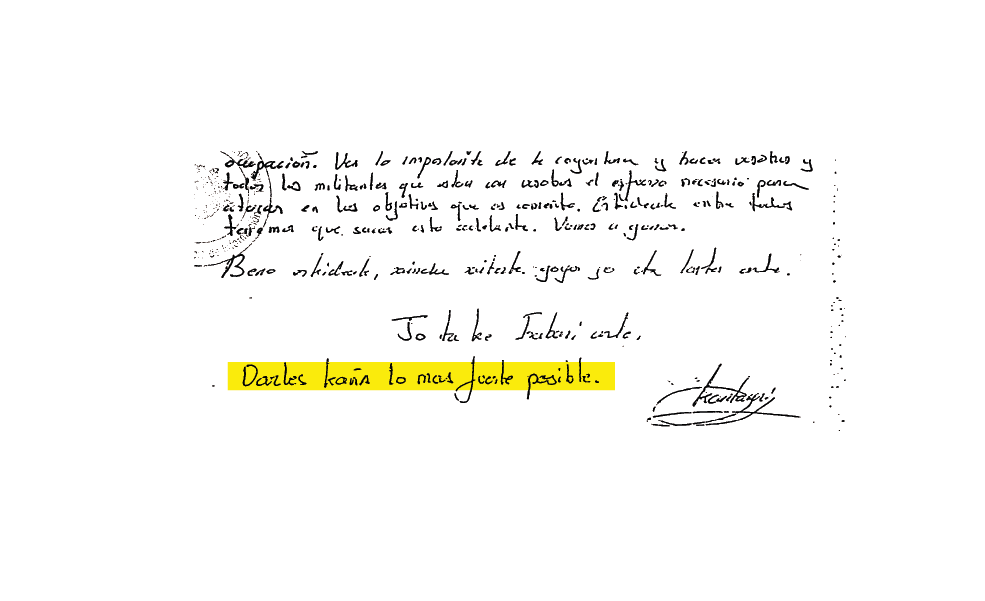 ocupación. Ver lo importante de la coyuntura y hacer vosotros y
todos los militantes que estan con vosotros el esfuerzo necesario para
atacar en los objetivos que os comente. entre todos
tenemos que sacar esto adelante. Vamos a ganar.
Beno gogo jo eta
Jo ta ke Irabazi arte.
Darles kaña lo mas fuerte posible.